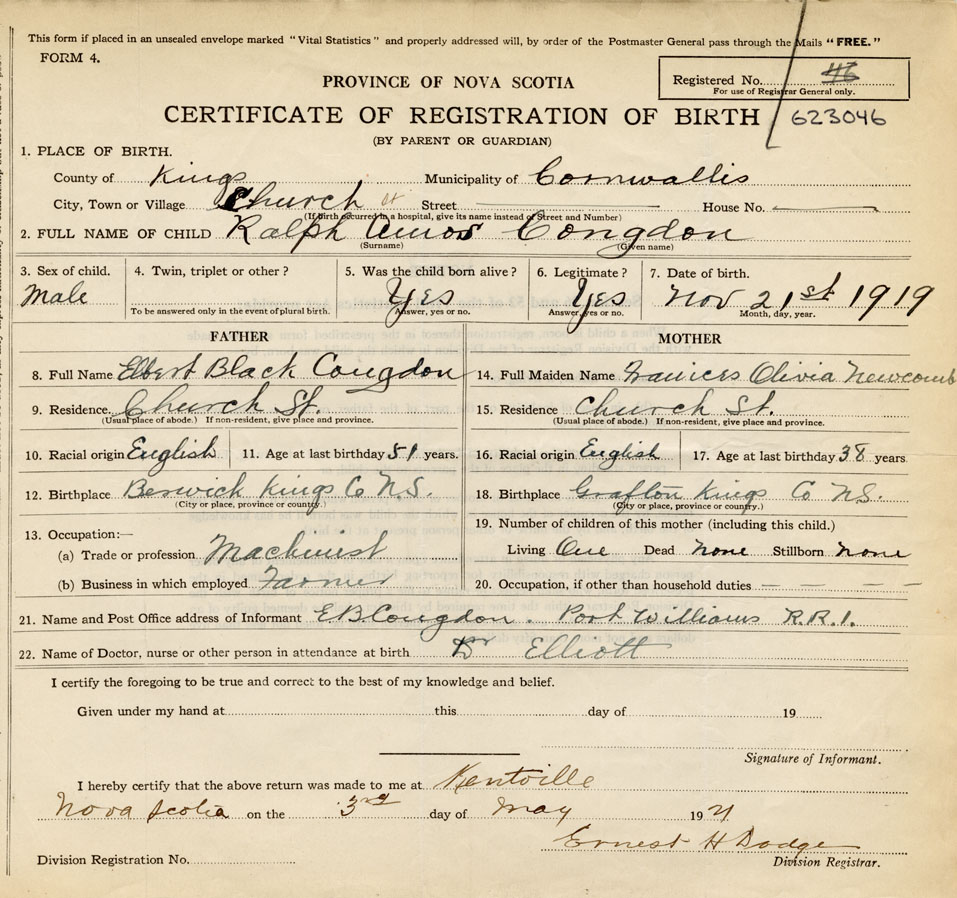 This form if placed in an unsealed envelope marked "Vital Statistics" and properly addressed will, by order of the Postmaster General pass through the Mails "FREE."
FORM 4.
PROVINCE OF NOVA SCOTIA
Registered No. 46
For use of Registrar General only.
CERTIFICATE OF REGISTRATION OF BIRTH 623046
(BY PARENT OR GUARDIAN)
1. PLACE OF BIRTH.
County of Kings Municipality of Cornwallis
City, Town or Village Church st Street House No.
(If birth occurred in a hospital, give its name instead of Street and Number)
2. FULL NAME OF CHILD Ralph Amos Congdon
(Surname) (Given name)
3. Sex of child. 4. Twin, triplet or other? 5. Was the child born alive? 6. Legitimate? 7. Date of birth.
Male Yes Yes Nov 21st 1919
To be answered only in the event of plural birth. Answer, yes or no. Answer, yes or no. Month, day, year.
FATHER MOTHER
8. Full Name Elbert Black Congdon 14. Full Maiden Name Frances Olivia Newcomb
9. Residence. Church St. 15. Residence Church St.
(Usual place of abode.) If non-resident, give place and province. (Usual place of abode.) If non-resident, give place and province.
10. Racial origin English 11. Age at last birthday 51 years. 16. Racial origin English 17. Age at last birthday 38 years.
12. Birthplace Berwick Kings Co N.S. 18. Birthplace Grafton Kings Co N.S.
(City or place, province or country.) (City or place, province or country.)
13. Occupation:— 19. Number of children of this mother (including this child.)
(a) Trade or profession Machinist Living One Dead None Stillborn None
(b) Business in which employed Farmer 20. Occupation, if other than household duties
21. Name and Post Office address of Informant E B Congdon. Port Williams R.R.1.
22. Name of Doctor, nurse or other person in attendance at birth Dr Elliott
I certify the foregoing to be true and correct to the best of my knowledge and belief.
Given under my hand at this day of 19
Signature of Informant.
I hereby certify that the above return was made to me at Kentville
Nova Scotia on the 3rd day of May 1921
Ernest H Dodge
Division Registration No. Division Registrar.